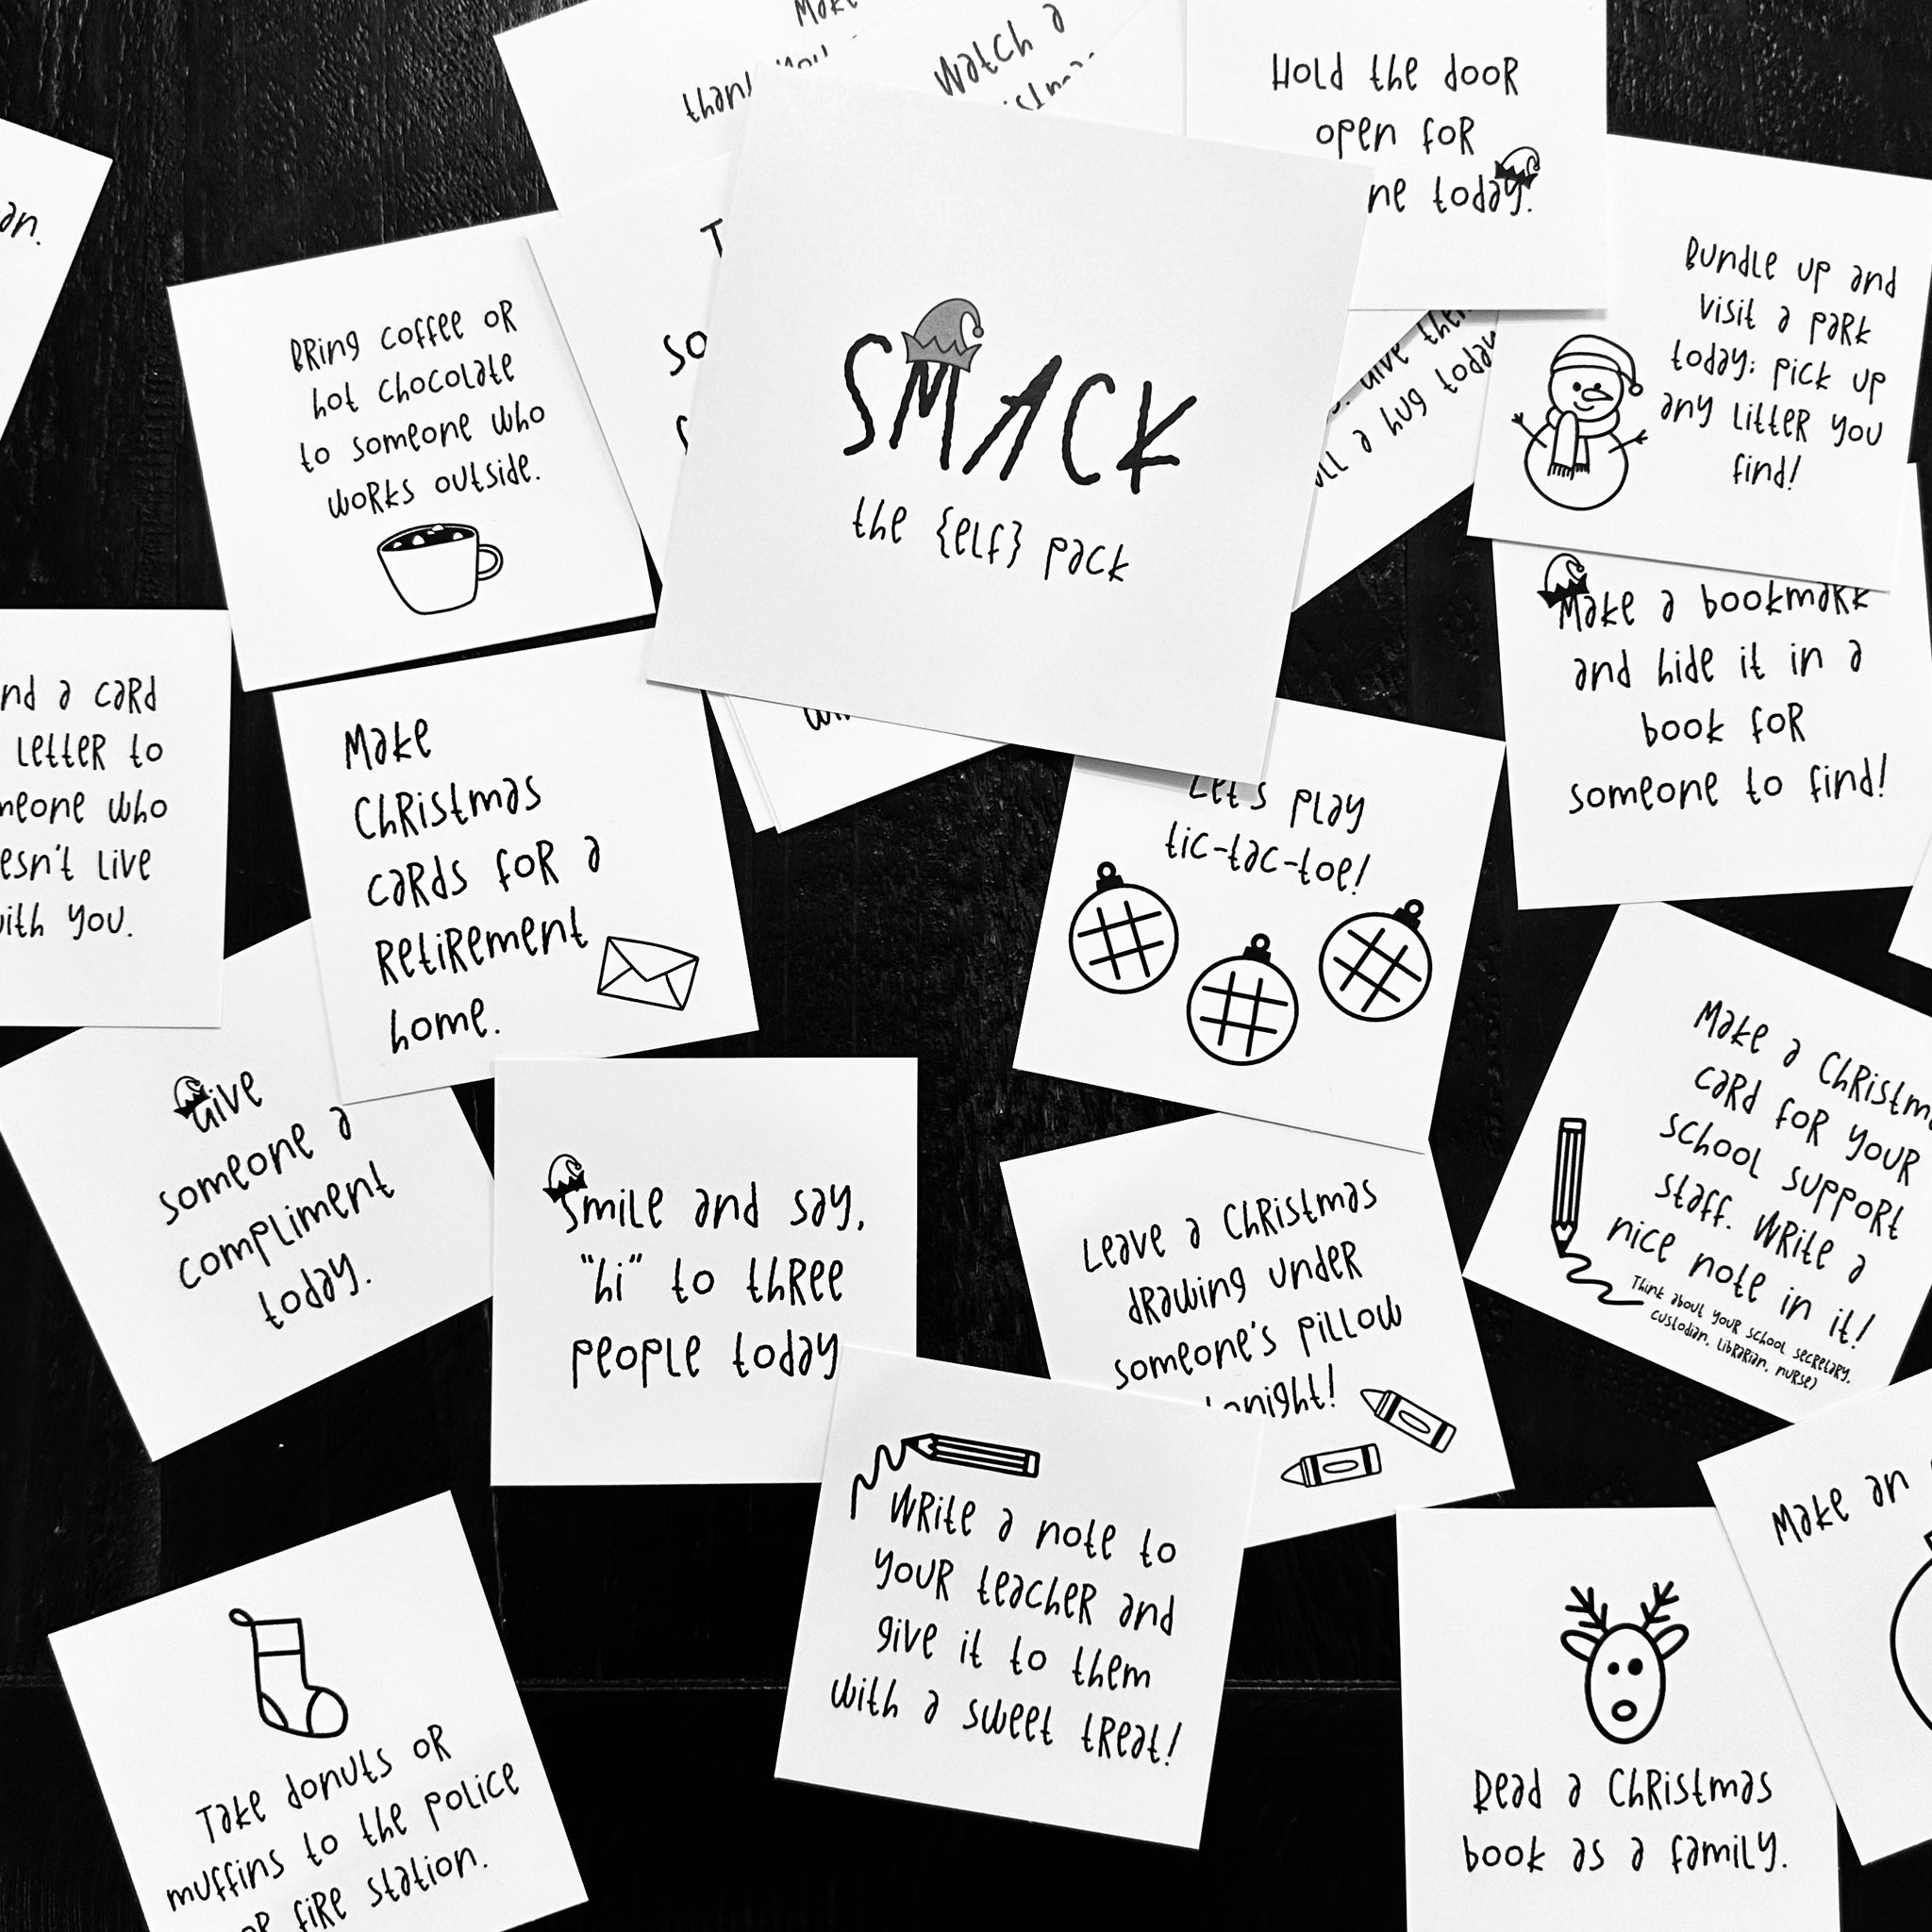 Make
thank you
Watch a
Hold the door
open for
today.
Bring coffee or
hot chocolate
to someone who
works outside.
T
SMACK
the {elf} pack
Give
a hug today
Bundle up and
visit a park
today; pick up
any litter you
find!
Make a bookmark
and hide it in a
book for
someone to find!
a card
letter to
who
live
with you.
Make
Christmas
cards for a
retirement
home.
Let's play
tic-tac-toe!
Make a
card for your
school support
staff. Write a
nice note in it!
Think about your school secretary,
custodian, librarian, nurse)
Give
someone a
compliment
today.
Smile and say,
"hi" to three
people today
Leave a Christmas
drawing under
someone's pillow
tonight!
Write a note to
your teacher and
give it to them
with a sweet treat!
Make an
Take donuts or
muffins to the police
or fire station.
Read a Christmas
book as a family.